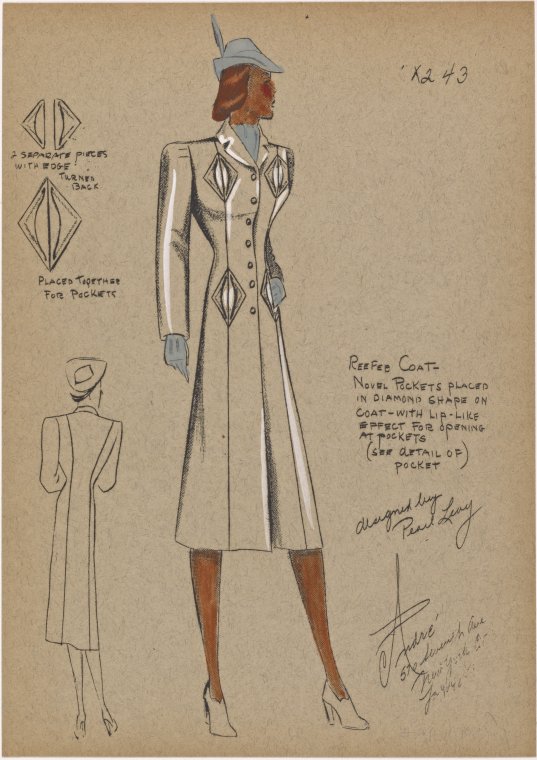 'X243
2 SEPARATE PIECES
WITH EDGE
TURNED
BACK
PLACED TOGETHER
FOR POCKETS
REEFER COAT-
NOVEL POCKETS PLACED
IN DIAMOND SHAPE ON
COAT-WITH LIP-LIKE
EFFECT FOR OPENING
AT POCKETS
(SEE DETAIL OF)
POCKET
designed by
Pearl Levy
André
570 Seventh Ave
New York